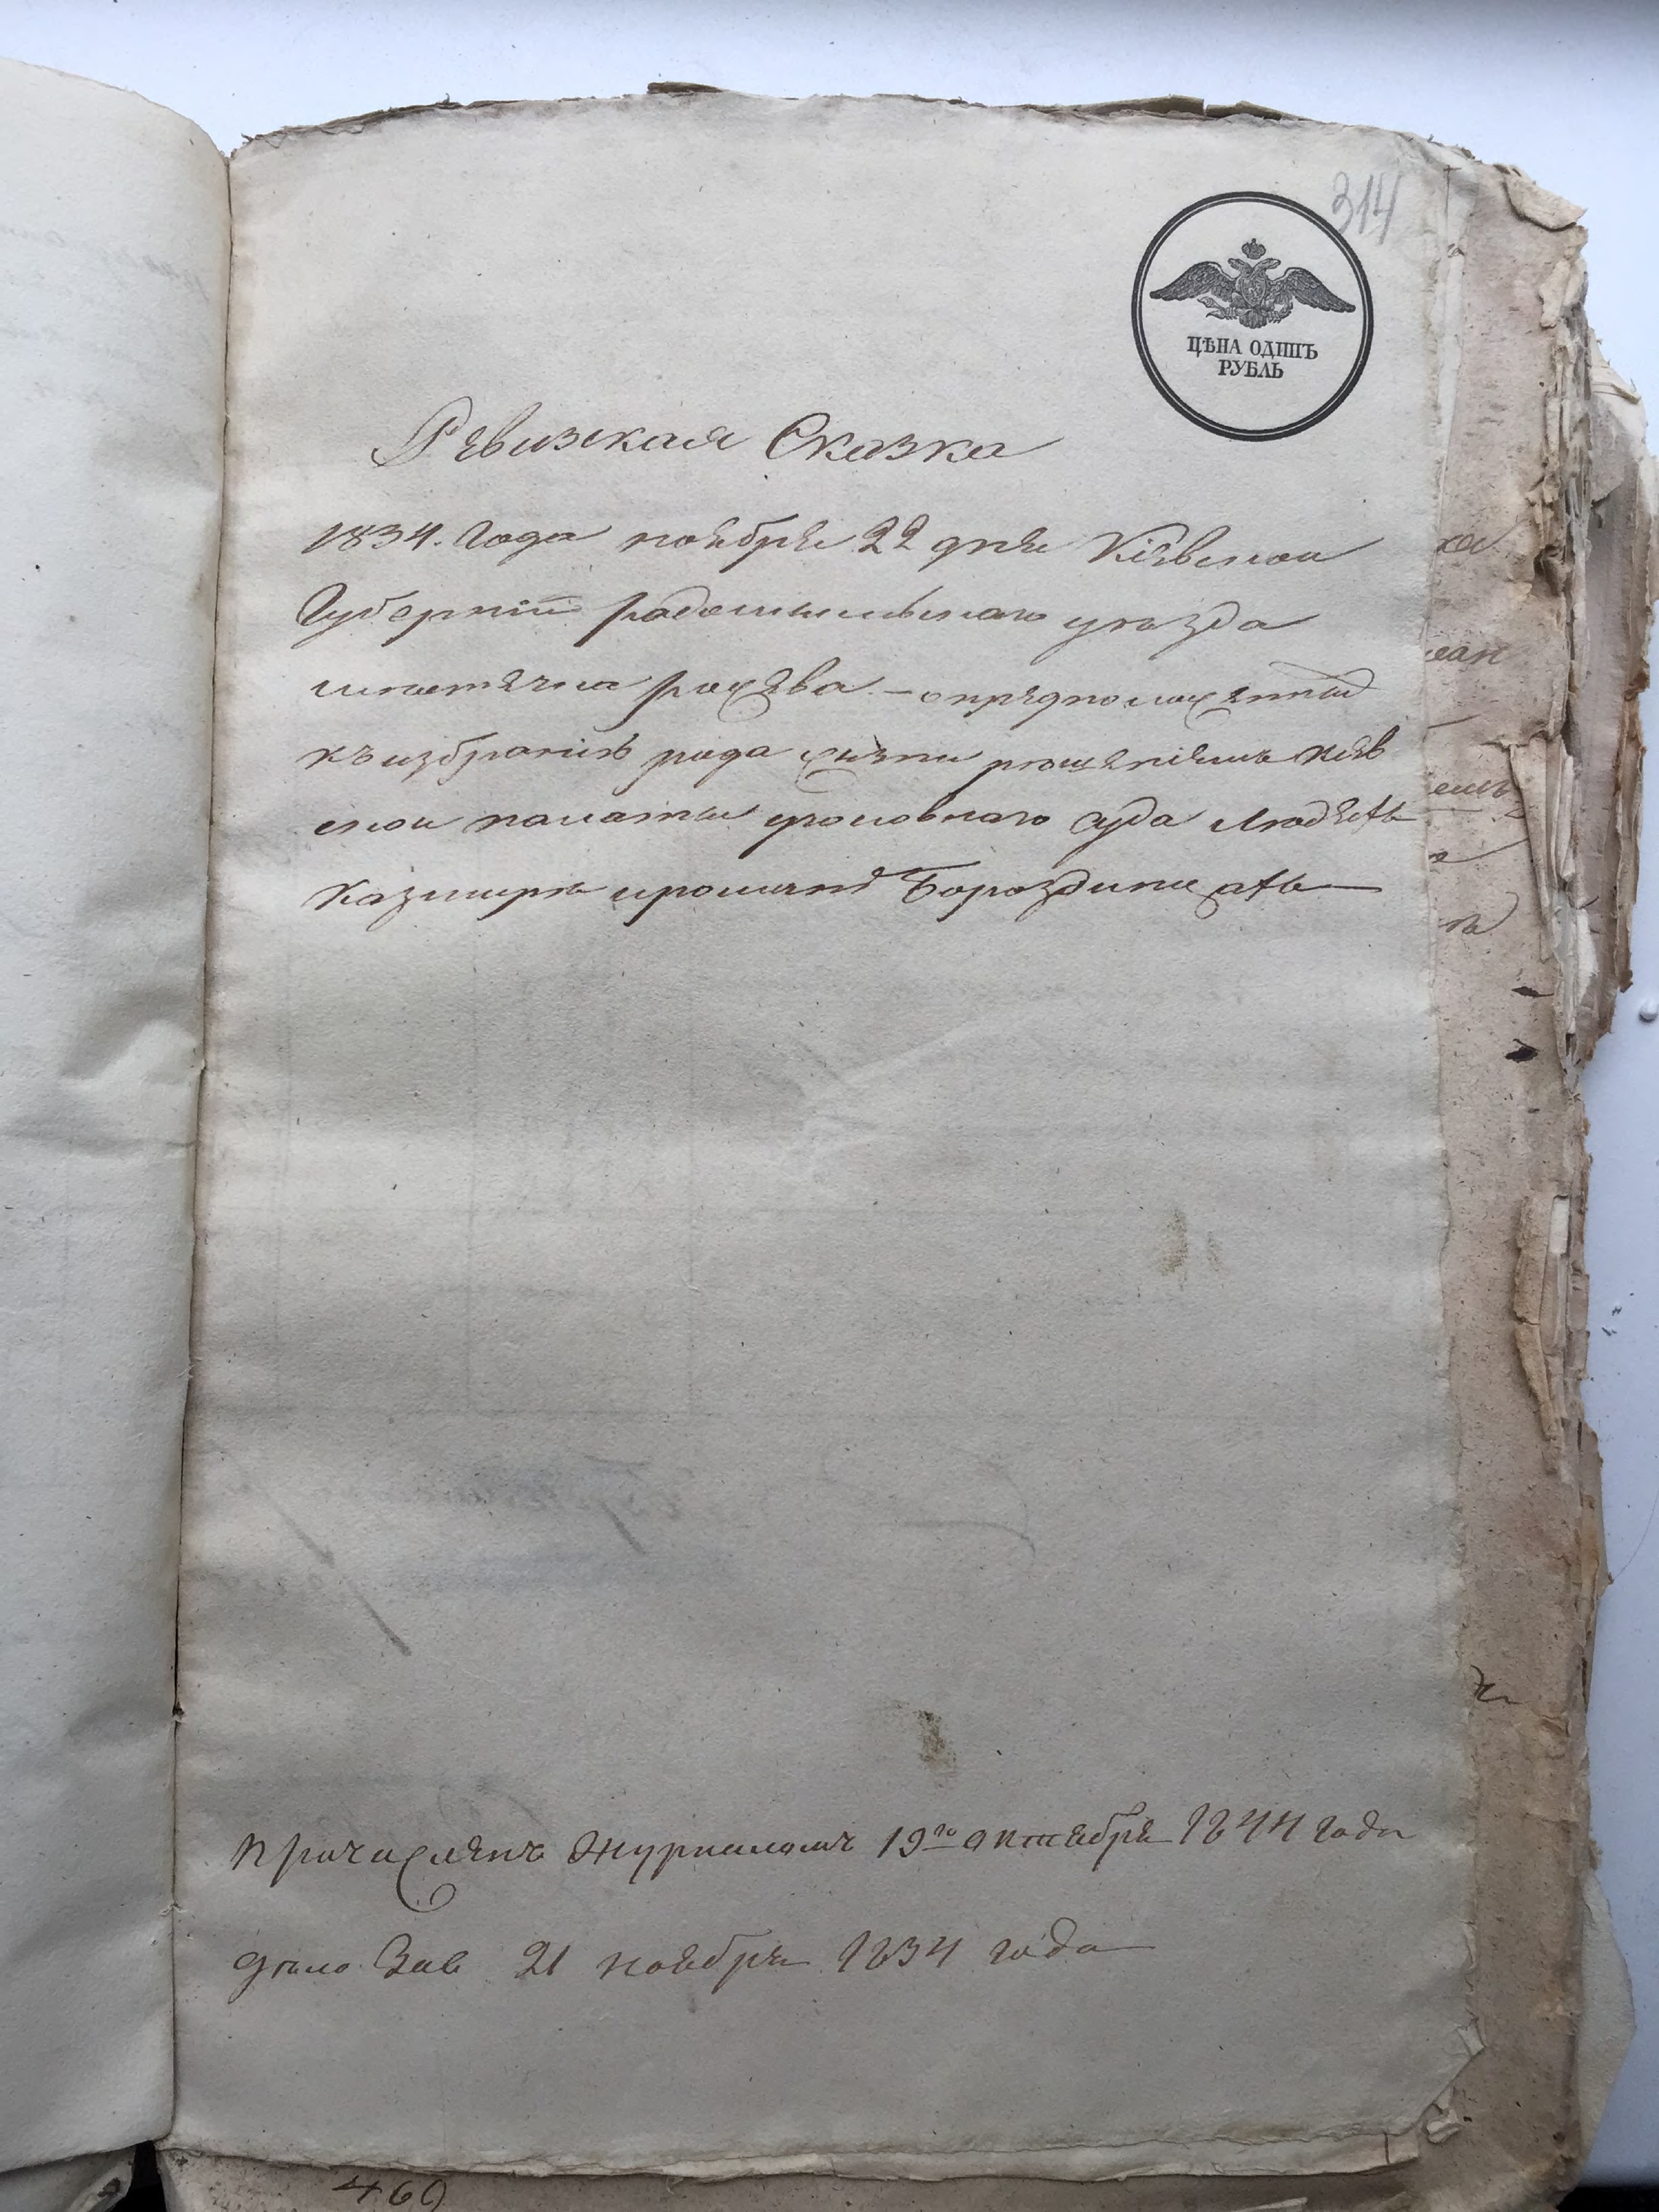 314
ЦѢНА ОДИНЪ
РУБЛЬ
Ревизская Сказка
1834. Года ноября 22 дня Кіевской
Губерніи радомысльского уезда
местечка рожева – о предполагаемы
къ избранію рода жизни решеніемъ Кіев
ской палаты уголовного суда людяхъ
Казимира Бороздичахъ
Причисленъ Журналомъ 19го октября 1844 года
дело 21 ноября 1834 года
469